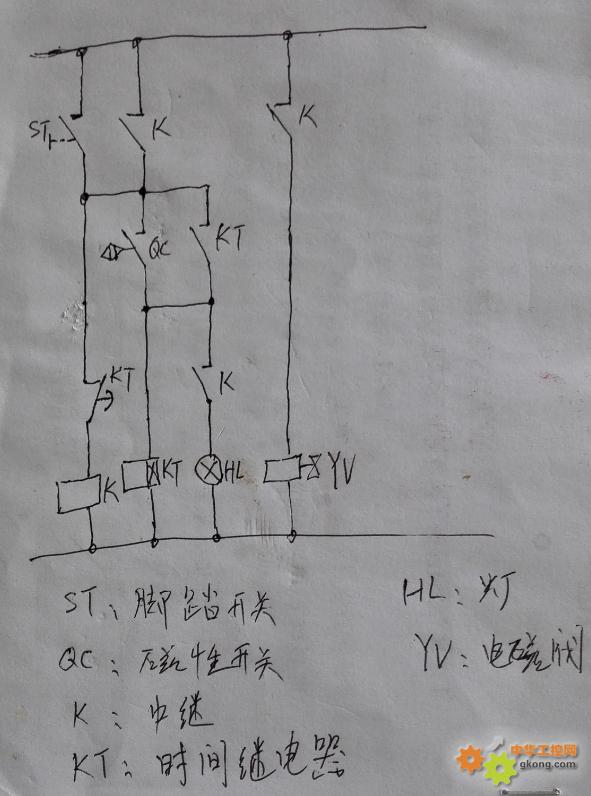 ST K K
QC KT
KT K
K KT HL YV
ST: 脚踏开关 HL: 灯
QC: 磁性开关 YV: 电磁阀
K: 中继
KT: 时间继电器
中华工控网
gkong.com